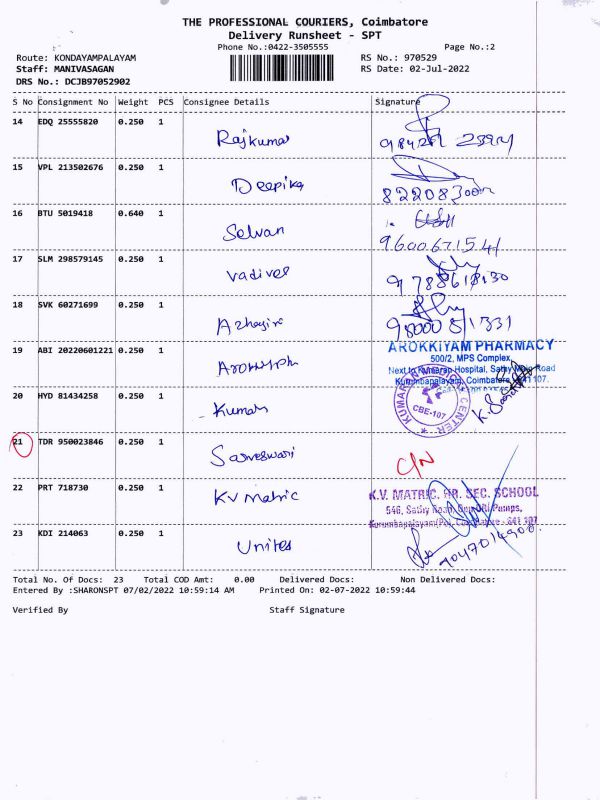 THE PROFESSIONAL COURIERS, Coimbatore
Delivery Runsheet - SPT
Phone No.:0422-3505555 Page No.:2
Route: KONDAYAMPALAYAM RS No.: 970529
Staff: MANIVASAGAN RS Date: 02-Jul-2022
DRS No.: DCJB97052902
S No Consignment No Weight PCS Consignee Details Signature
14 EDQ 25555820 0.250 1 Rajkumar
15 VPL 213502676 0.250 1 Deepika
16 BTU 5019418 0.640 1 Selvan
9600671541
17 SLM 298579145 0.250 1 Vadivel
18 SVK 60271699 0.250 1
19 ABI 20220601221 0.250 1
AROKKIYAM PHARMACY
500/2, MPS Complex,
Next to Kumaran Hospital, Sathy Main Road
Kurumbapalayam, Coimbatore - 641 107.
20 HYD 81434258 0.250 1 Kumar
CBE-107
21 TDR 950023846 0.250 1 Sasveswari
C/N
22 PRT 718730 0.250 1 KV Matric
K.V. MATRIC. HR. SEC. SCHOOL
546, Sathy Road,
Kurumbapalayam(Po), Coimbatore - 641 107
23 KDI 214063 0.250 1 Unites
Total No. Of Docs: 23 Total COD Amt: 0.00 Delivered Docs: Non Delivered Docs:
Entered By :SHARONSPT 07/02/2022 10:59:14 AM Printed On: 02-07-2022 10:59:44
Verified By Staff Signature